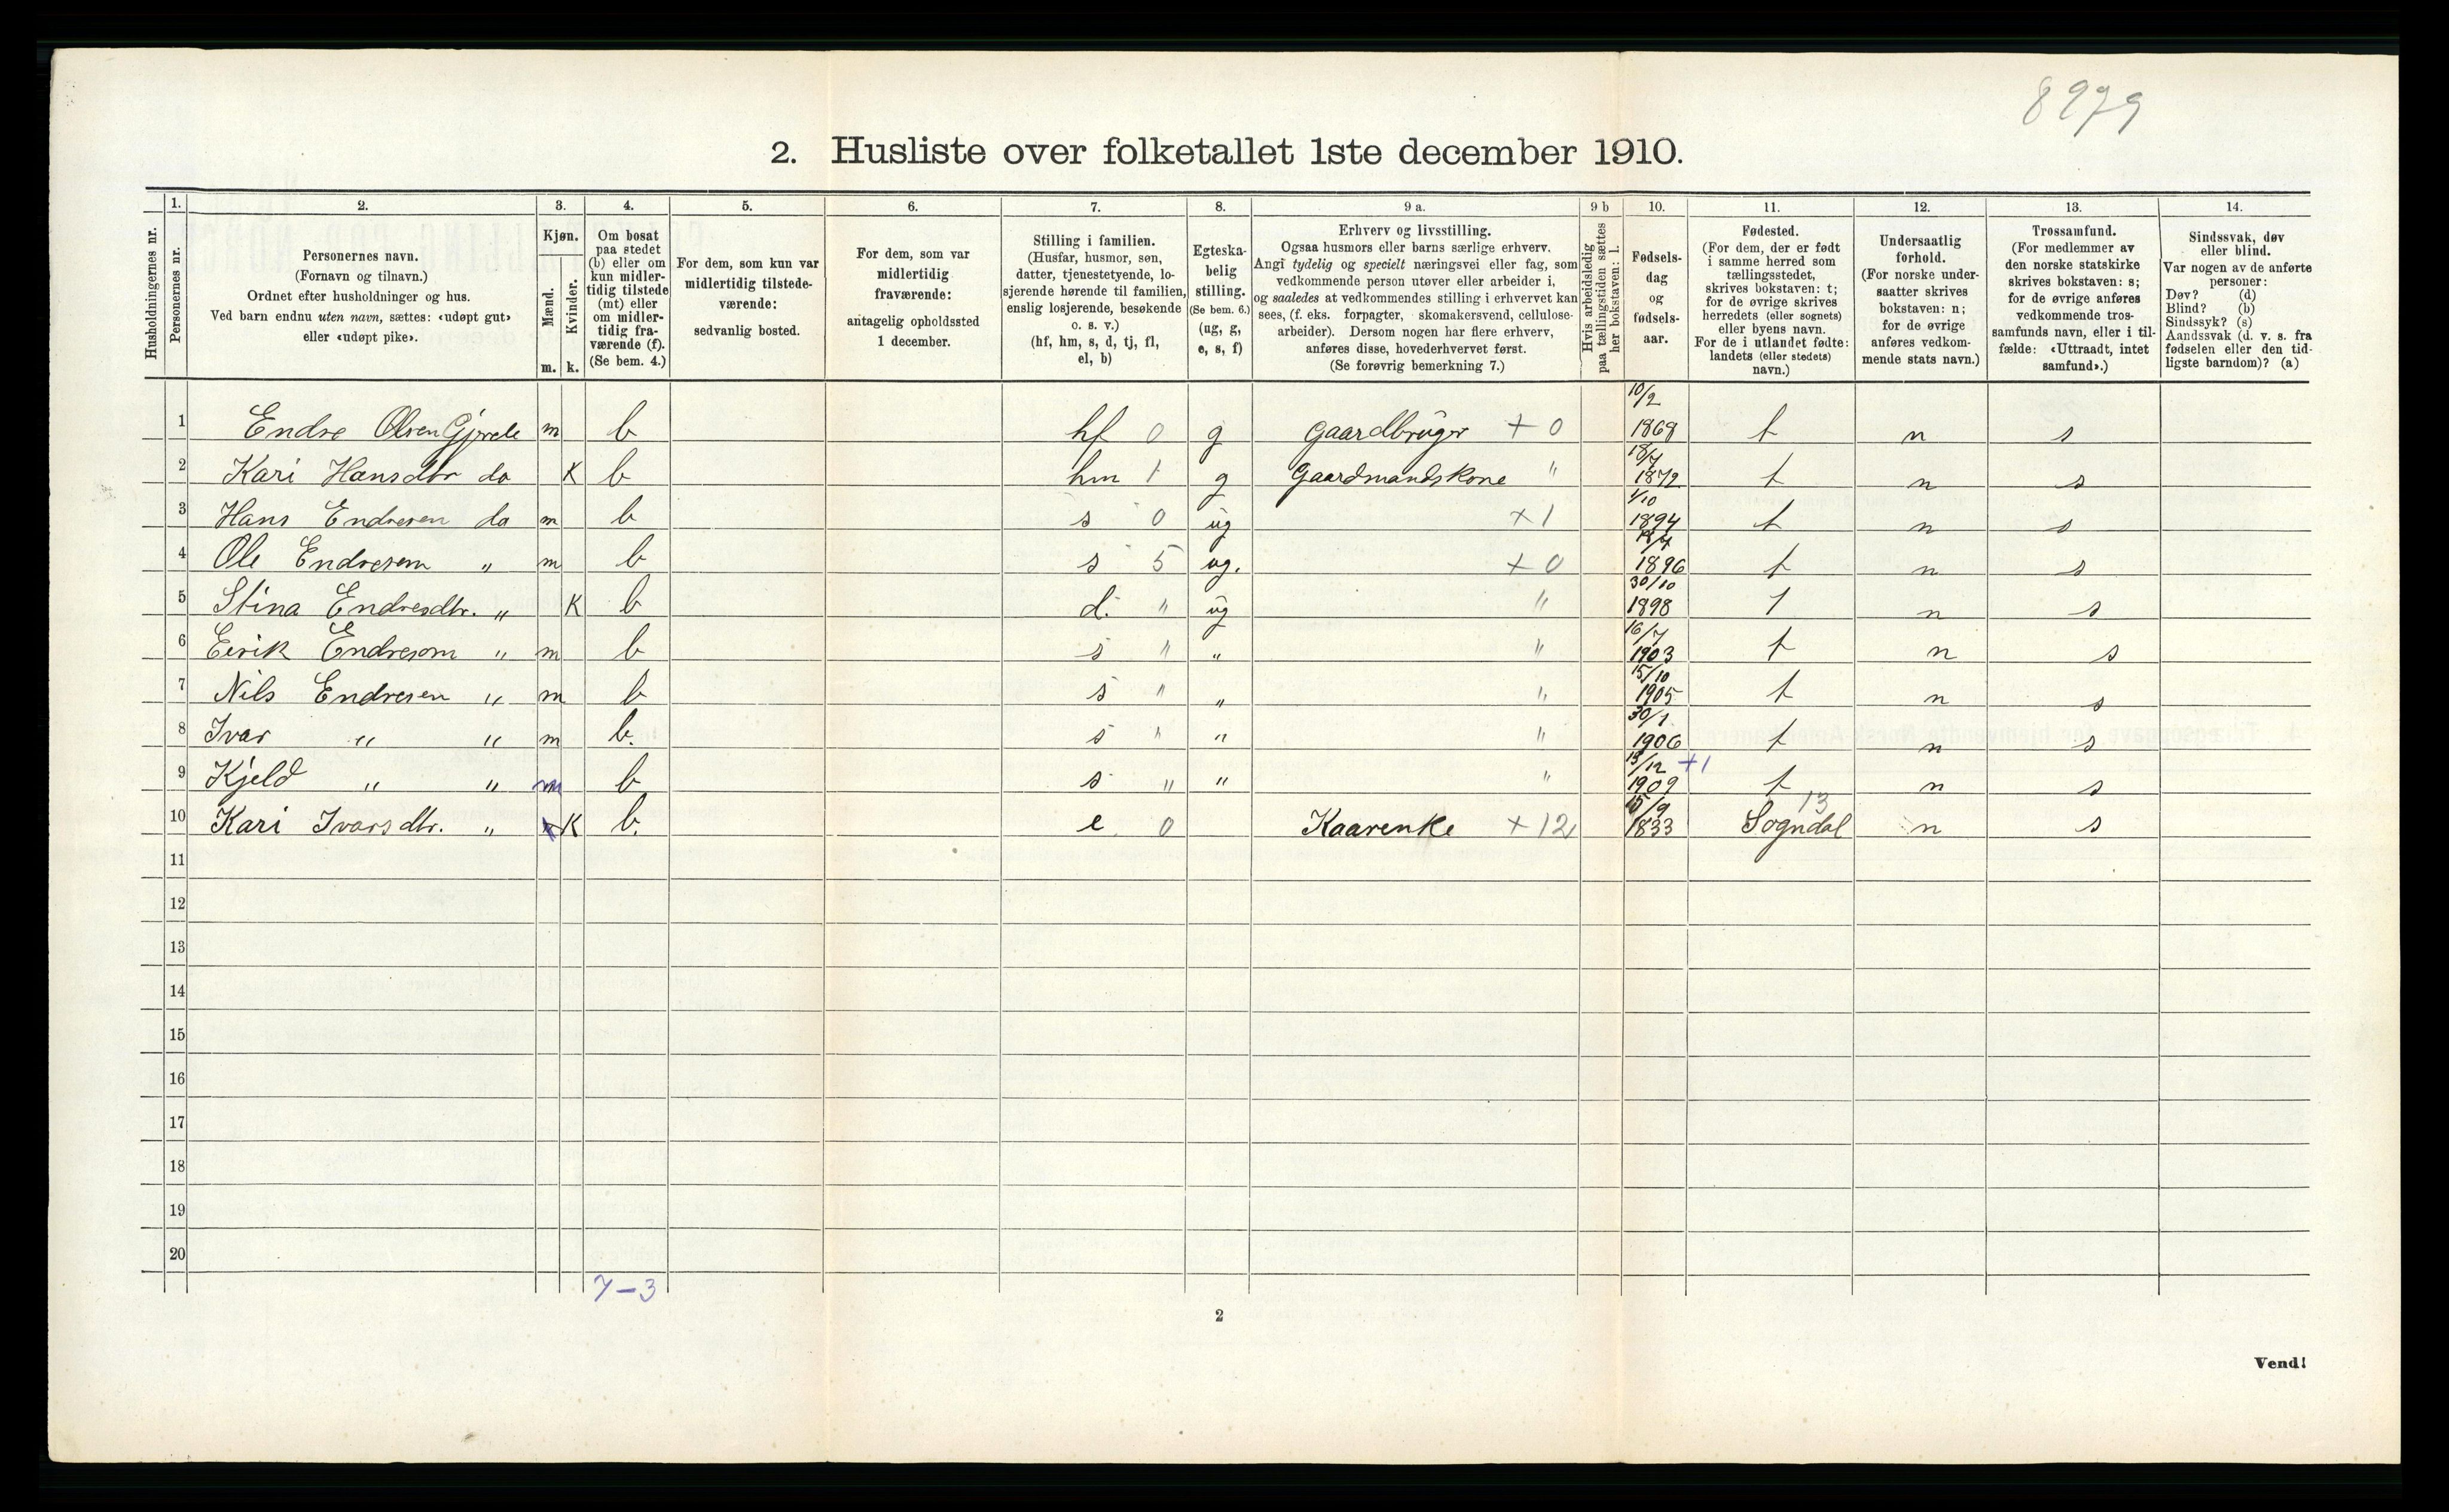 8979
2. Husliste over folketallet 1ste december 1910.
1. 2. 3. 4. 5. 6. 7. 8. 9 a. 9 b 10. 11. 12. 13. 14.
Husholdningernes nr.
Personernes nr.
Personernes navn.
(Fornavn og tilnavn.)
Ordnet efter husholdninger og hus.
Ved barn endnu uten navn, sættes: «udøpt gut»
eller «udøpt pike».
Kjøn.
Mænd.
Kvinder.
m. k.
Om bosat
paa stedet
(b) eller om
kun midler-
tidig tilstede
(mt) eller
om midler-
tidig fra-
værende (f).
(Se bem. 4.)
For dem, som kun var
midlertidig tilstede-
værende:
sedvanlig bosted.
For dem, som var
midlertidig
fraværende:
antagelig opholdssted
1 december.
Stilling i familien.
(Husfar, husmor, søn,
datter, tjenestetyende, lo-
sjerende hørende til familien,
enslig losjerende, besøkende
o. s. v.)
(hf, hm, s, d, tj, fl,
el, b)
Egteska-
belig
stilling.
(Se bem. 6.)
(ug, g,
e, s, f)
Erhverv og livsstilling.
Ogsaa husmors eller barns særlige erhverv.
Angi tydelig og specielt næringsvei eller fag, som
vedkommende person utøver eller arbeider i,
og saaledes at vedkommendes stilling i erhvervet kan
sees, (f. eks. forpagter, skomakersvend, cellulose-
arbeider). Dersom nogen har flere erhverv,
anføres disse, hovederhvervet først.
(Se forøvrig bemerkning 7.)
Hvis arbeidsledig
paa tællingstiden sættes
her bokstaven: l.
Fødsels-
dag
og
fødsels-
aar.
Fødested.
(For dem, der er født
i samme herred som
tællingsstedet,
skrives bokstaven: t;
for de øvrige skrives
herredets (eller sognets)
eller byens navn.
For de i utlandet fødte:
landets (eller stedets)
navn.)
Undersaatlig
forhold.
(For norske under-
saatter skrives
bokstaven: n;
for de øvrige
anføres vedkom-
mende stats navn.)
Trossamfund.
(For medlemmer av
den norske statskirke
skrives bokstaven: s;
for de øvrige anføres
vedkommende tros-
samfunds navn, eller i til-
fælde: «Uttraadt, intet
samfund».)
Sindssvak, døv
eller blind.
Var nogen av de anførte
personer:
Døv? (d)
Blind? (b)
Sindssyk? (s)
Aandssvak (d. v. s. fra
fødselen eller den tid-
ligste barndom)? (a)
1 Endre Olsen m b hf 0 g Gaardbruger + 0 10/2 1868 t n s
2 Kari Hansdtr do K b hm 1 g Gaardmandskone " 18/7 1872 t n s
3 Hans Endresen do m b s 0 ug + 1 1/10 1894 t n s
4 Ole Endresen " m b s 5 ug. + 0 1896 t n s
5 Stina Endresdtr. " K b d. " ug " 30/10 1898 t n s
6 Eirik Endresøn " m b s " " " 16/7 1903 t n s
7 Nils Endresen " m b s " " " 15/10 1905 t n s
8 Ivar " " m b. s " " " 30/1 1906 t n s
9 Kjeld " " m b s " " " 13/12 1909 +1 t n s
10 Kari Ivarsdtr. " K b. e 0 Kaarenke + 12 15/9 1833 13 Sogndal n s
11
12
13
14
15
16
17
18
19
20
7 – 3
2
Vend!